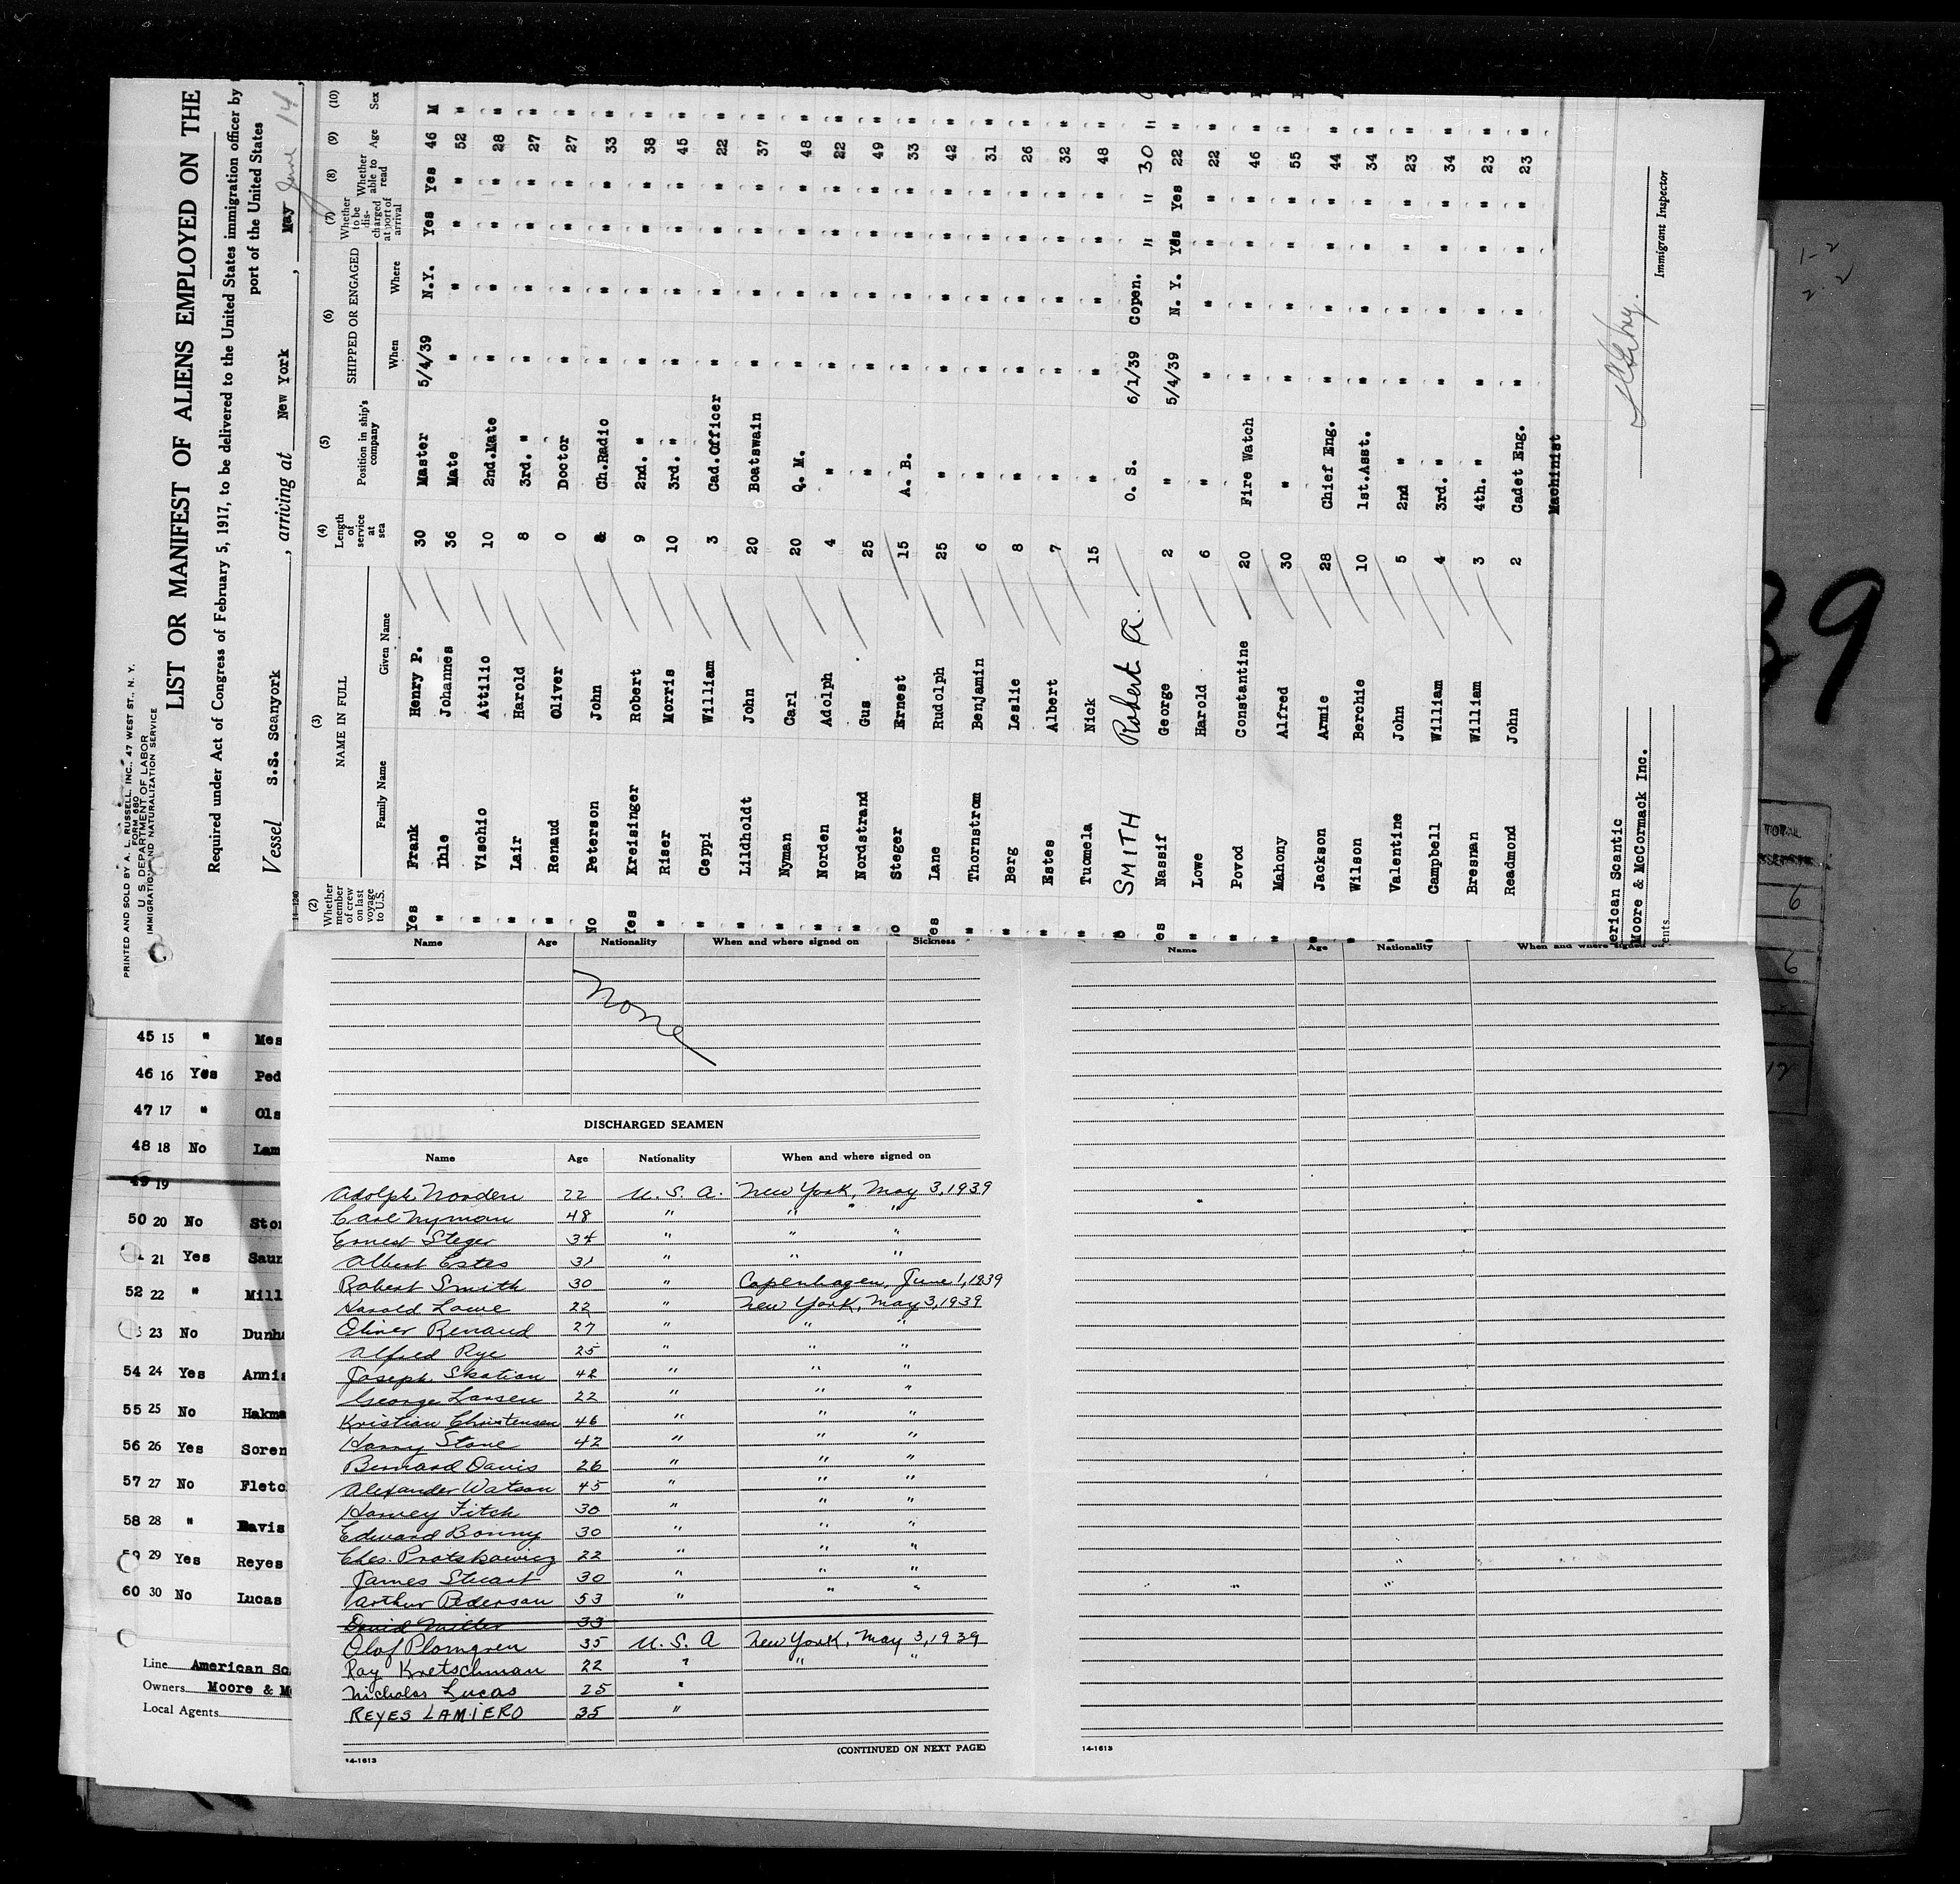 PRINTED AND SOLD BY A. L. RUSSELL, INC., 47 WEST ST., N. Y.
FORM 680
U. S. DEPARTMENT OF LABOR
IMMIGRATION AND NATURALIZATION SERVICE
LIST OR MANIFEST OF ALIENS EMPLOYED ON THE
Required under Act of Congress of February 5, 1917, to be delivered to the United States immigration officer by
port of the United States
Vessel S.S. Scanyork, arriving at New York, May June 14,
14-1240
(2) Whether member of crew on last voyage to U.S. (3) NAME IN FULL Family Name Given Name (4) Length of service at sea (5) Position in ship's company (6) SHIPPED OR ENGAGED When Where (7) Whether to be discharged at port of arrival (8) Whether able to read (9) Age (10) Sex
Yes Frank Henry P. 30 Master 5/4/39 N.Y. Yes Yes 46 M
" Ihle Johannes 36 Mate " " " " 52 "
" Vischio Attilio 10 2nd.Mate " " " " 28 "
" Lair Harold 8 3rd. " " " " " 27 "
" Renaud Oliver 0 Doctor " " " " 27 "
No Peterson John & Ch.Radio " " " " 33 "
Yes Kreisinger Robert 9 2nd. " " " " " 38 "
" Riser Morris 10 3rd. " " " " " 45 "
" Ceppi William 3 Cad.Officer " " " " 22 "
" Lildholdt John 20 Boatswain " " " " 37 "
" Nyman Carl 20 Q. M. " " " " 48 "
" Norden Adolph 4 " " " " " 22 "
" Nordstrand Gus 25 " " " " " 49 "
No Steger Ernest 15 A. B. " " " " 33 "
Yes Lane Rudolph 25 " " " " " 42 "
" Thornstrom Benjamin 6 " " " " " 31 "
" Berg Leslie 8 " " " " " 26 "
" Estes Albert 7 " " " " " 32 "
" Tuomela Nick 15 " " " " " 48 "
SMITH Robert A. O. S. 6/1/39 Copen. " " 30 "
Yes Nassif George 2 " 5/4/39 N. Y. Yes Yes 22 "
" Lowe Harold 6 " " " " " 22 "
" Povod Constantine 20 Fire Watch " " " " 46 "
" Mahony Alfred 30 " " " " " 55 "
" Jackson Armie 28 Chief Eng. " " " " 44 "
" Wilson Berchie 10 1st.Asst. " " " " 34 "
" Valentine John 5 2nd " " " " " 23 "
" Campbell William 4 3rd. " " " " " 34 "
" Bresnan William 3 4th. " " " " " 23 "
" Readmond John 2 Cadet Eng. " " " " 23 "
Machinist
erican Scantic
Moore & McCormack Inc.
ents
Immigrant Inspector
39
1-2
2-2
TOTAL
9
9
12
45 15 " Mes
46 16 Yes Ped
47 17 " Ols
48 18 No Lam
49 19
50 20 No Sto
21 Yes Saun
52 22 " Mill
23 No Dunh
54 24 Yes Annis
55 25 No Hakma
56 26 Yes Soren
57 27 No Fletc
58 28 " Davis
59 29 Yes Reyes
60 30 No Lucas
Line American Sc
Owners Moore & M
Local Agents
Name Age Nationality When and where signed on Sickness
None
DISCHARGED SEAMEN
Name Age Nationality When and where signed on
Adolph Norden 22 U. S. A. New York, May 3, 1939
Carl Nyman 48 " " " "
Ernest Steger 34 " " "
Albert Estes 31 " " "
Robert Smith 30 " Copenhagen, June 1, 1939
Harold Lowe 22 " New York, May 3, 1939
Oliver Renaud 27 " " "
Alfred Rye 25 " " "
Joseph Skation 42 " " "
George Larsen 22 " " "
Kristian Christensen 46 " " "
Harry Stone 42 " " "
Bernard Davis 26 " " "
Alexander Watson 45 " " "
Harvey Fitch 30 " " "
Edward Bonny 30 " " "
Ches. Protskowicz 22 " " "
James Stuart 30 " " "
Arthur Pederson 53 " " "
David Miller 33
Olof Plomgren 35 U. S. A New York, May 3, 1939
Ray Kretschman 22 " " "
Nicholas Lucas 25 "
REYES LAMIERO 35 "
14-1613
(CONTINUED ON NEXT PAGE)
Name Age Nationality When and where signed on
14-1613